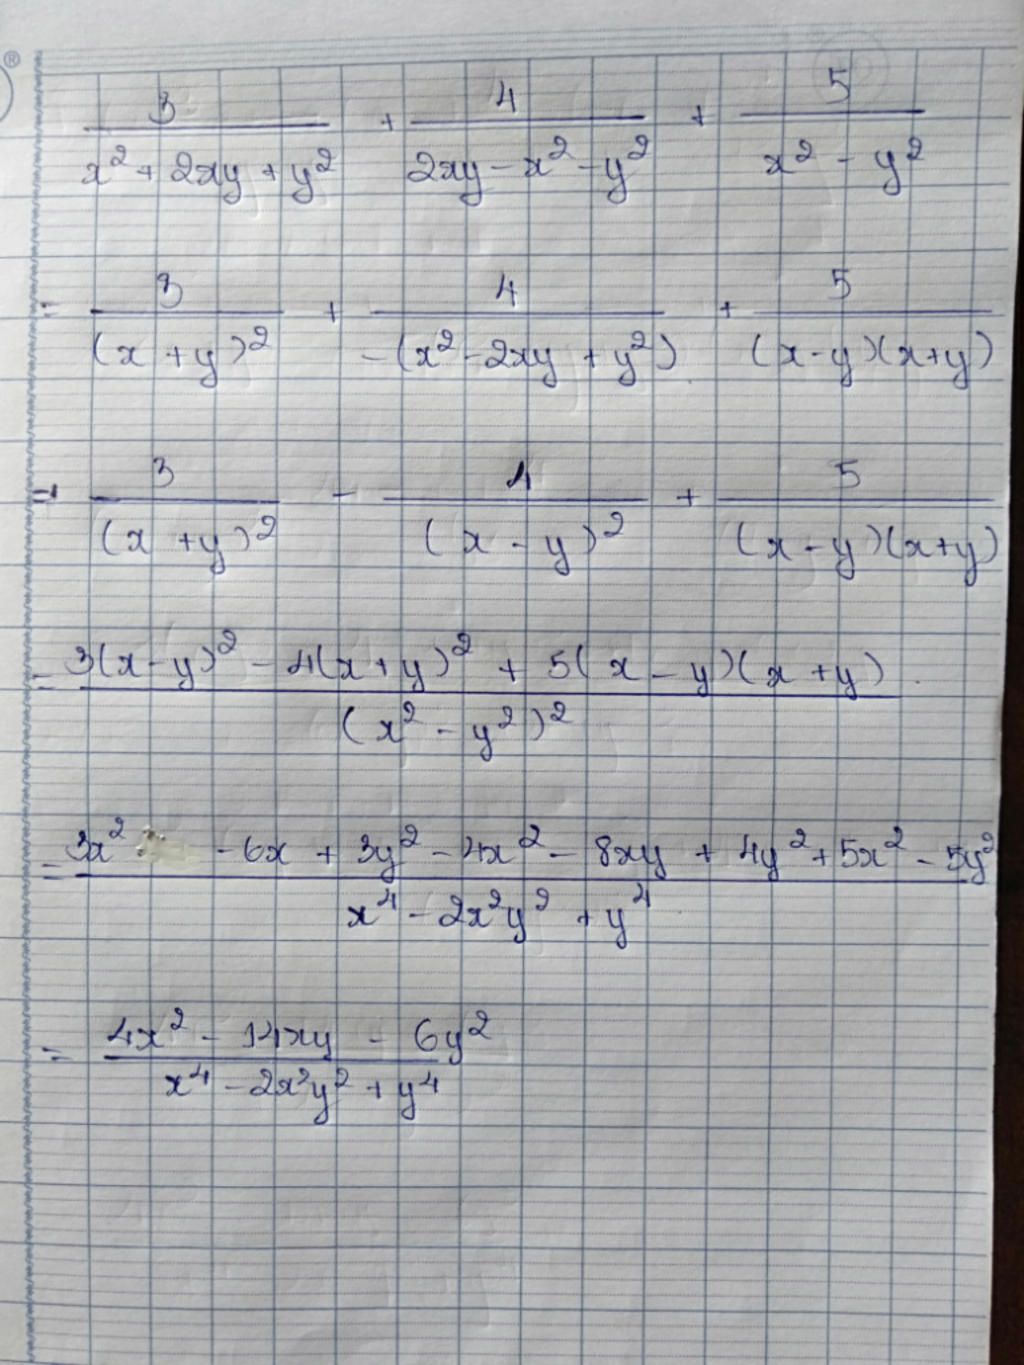 ®
3/(x² + 2xy + y²) + 4/(2xy - x² - y²) + 5/(x² - y²)
= 3/(x + y)² + 4/-(x² - 2xy + y²) + 5/(x-y)(x+y)
= 3/(x + y)² - 4/(x - y)² + 5/(x - y)(x+y)
= 3(x-y)² - 4(x+y)² + 5(x - y)(x + y)/(x² - y²)²
= 3x² - 6x + 3y² - 4x² - 8xy + 4y² + 5x² - 5y²/x⁴ - 2x²y² + y⁴
= 4x² - 14xy - 6y²/x⁴ - 2x²y² + y⁴